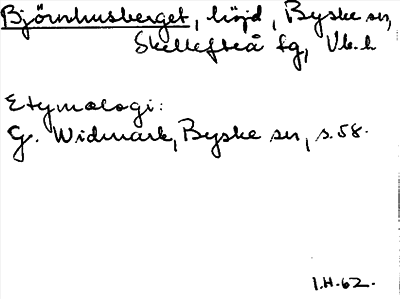 Björnhusberget, höjd, Byske sn,
Skellefteå tg, Vb. l.
Etymologi:
G. Widmark, Byske sn, s. 58.
I.H. 62.